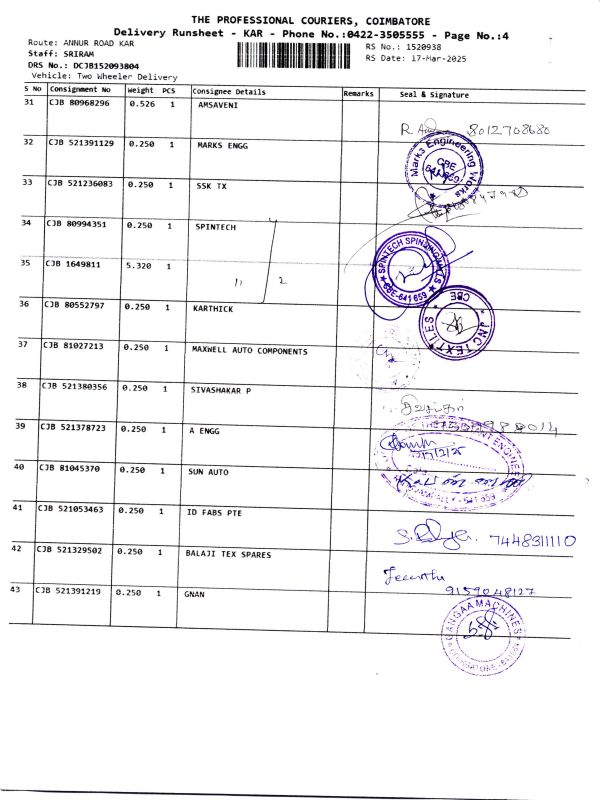 THE PROFESSIONAL COURIERS, COIMBATORE
Delivery Runsheet - KAR - Phone No.:0422-3505555 - Page No.:4
Route: ANNUR ROAD KAR
RS No.: 1520938
Staff: SRIRAM
RS Date: 17-Mar-2025
DRS No.: DCJB152093804
Vehicle: Two Wheeler Delivery
S No Consignment No Weight PCS Consignee Details Remarks Seal & Signature
31 CJB 80968296 0.526 1 AMSAVENI
8012708680
32 CJB 521391129 0.250 1 MARKS ENGG
Marks Engineering Works
CBE
33 CJB 521236083 0.250 1 SSK TX
34 CJB 80994351 0.250 1 SPINTECH
SPINTECH
CBE-641659
35 CJB 1649811 5.320 1
11 2
36 CJB 80552797 0.250 1 KARTHICK
JNC TEXTILES
CBE
37 CJB 81027213 0.250 1 MAXWELL AUTO COMPONENTS
38 CJB 521380356 0.250 1 SIVASHAKAR P
39 CJB 521378723 0.250 1 A ENGG
40 CJB 81045370 0.250 1 SUN AUTO
41 CJB 521053463 0.250 1 ID FABS PTE
7448311110
42 CJB 521329502 0.250 1 BALAJI TEX SPARES
9159048127
43 CJB 521391219 0.250 1 GNAN
MACHINES